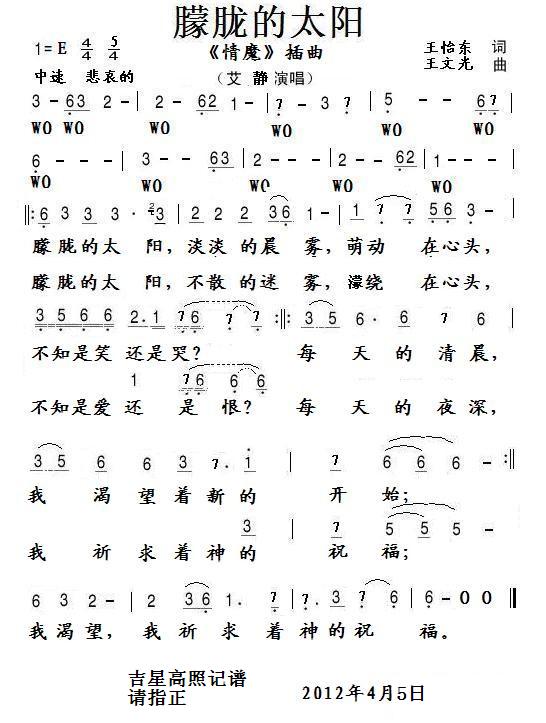 朦胧的太阳
1=E 4/4 5/4
《情魔》插曲
王怡东 词
中速 悲哀的
（艾 静 演唱）
王文光 曲
3 - 63 2 - - 62 1 - - 7 7 5 - - 67
WO WO WO WO
6 - - - 3 - - 63 2 - - 2 - - 62 1 - -
WO WO WO WO
‖: 6 3 3 3 · 2 3 | 2 2 2 36 1 - | 1 7 7 56 3 - |
朦胧的太 阳，淡淡的晨 雾，萌动 在心头，
朦胧的太 阳，不散的迷 雾，濛绕 在心头，
3566 2.1 76 7 7 :‖: 35 6· 6 7 6 |
不知是笑 还是哭？ 每 天 的 清晨，
1 76 66
不知是爱 还 是 恨？ 每 天 的 夜深，
35 6 6 3 7. 1 | 7 6 6 6 - :‖
我 渴 望着新的 开 始；
3 7 5 5 5
我 祈 求着神的 祝 福；
6 3 2 - | 2 36 1. 7 | 7 3 7 56 | 6 - 0 0 ‖
我渴望，我祈 求着神的祝 福。
吉星高照记谱
请指正
2012年4月5日